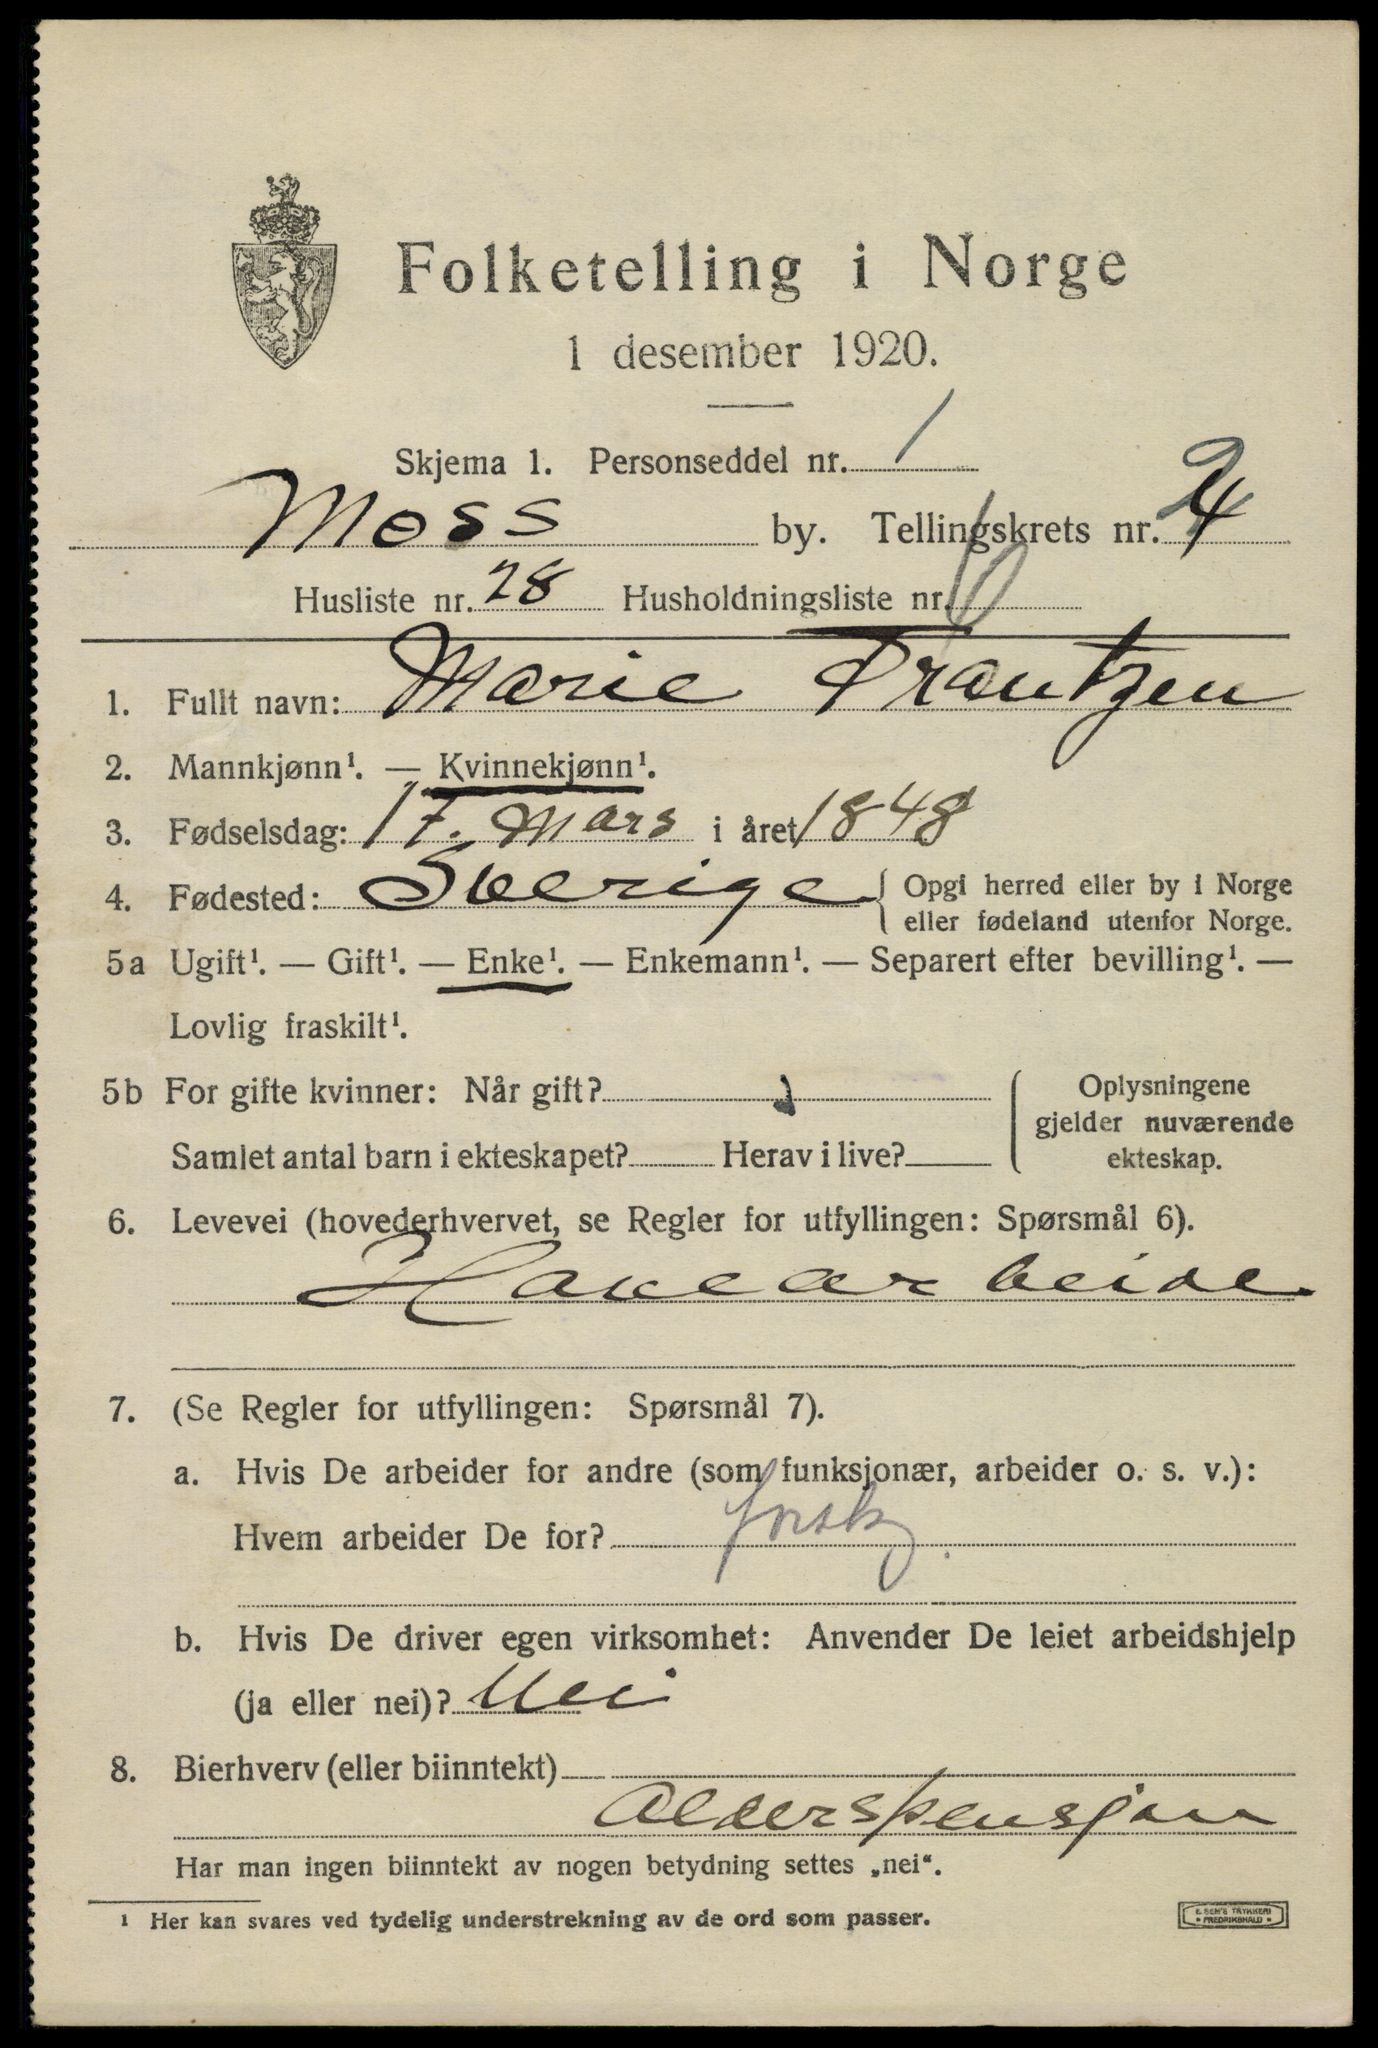 Folketelling i Norge
1 desember 1920.
Skjema 1. Personseddel nr. 1
Moss by. Tellingskrets nr. 4
Husliste nr. 28 Husholdningsliste nr.
1. Fullt navn: Marie Frantzen
2. Mannkjønn¹. — Kvinnekjønn¹.
3. Fødselsdag: 17. Mars i året 1848
4. Fødested: Sverige { Opgi herred eller by i Norge
eller fødeland utenfor Norge.
5a Ugift¹. — Gift¹. — Enke¹. — Enkemann¹. — Separert efter bevilling¹. —
Lovlig fraskilt¹.
5b For gifte kvinner: Når gift?
Samlet antal barn i ekteskapet? Herav i live?
Oplysningene
gjelder nuværende
ekteskap.
6. Levevei (hovederhvervet, se Regler for utfyllingen: Spørsmål 6).
7. (Se Regler for utfyllingen: Spørsmål 7).
a. Hvis De arbeider for andre (som funksjonær, arbeider o. s. v.):
Hvem arbeider De for?
b. Hvis De driver egen virksomhet: Anvender De leiet arbeidshjelp
(ja eller nei)? Nei
8. Bierhverv (eller biinntekt)
Alderspensjon
Har man ingen biinntekt av nogen betydning settes „nei“.
¹ Her kan svares ved tydelig understrekning av de ord som passer.
E. SEM'S TRYKKERI
FREDRIKSHALD